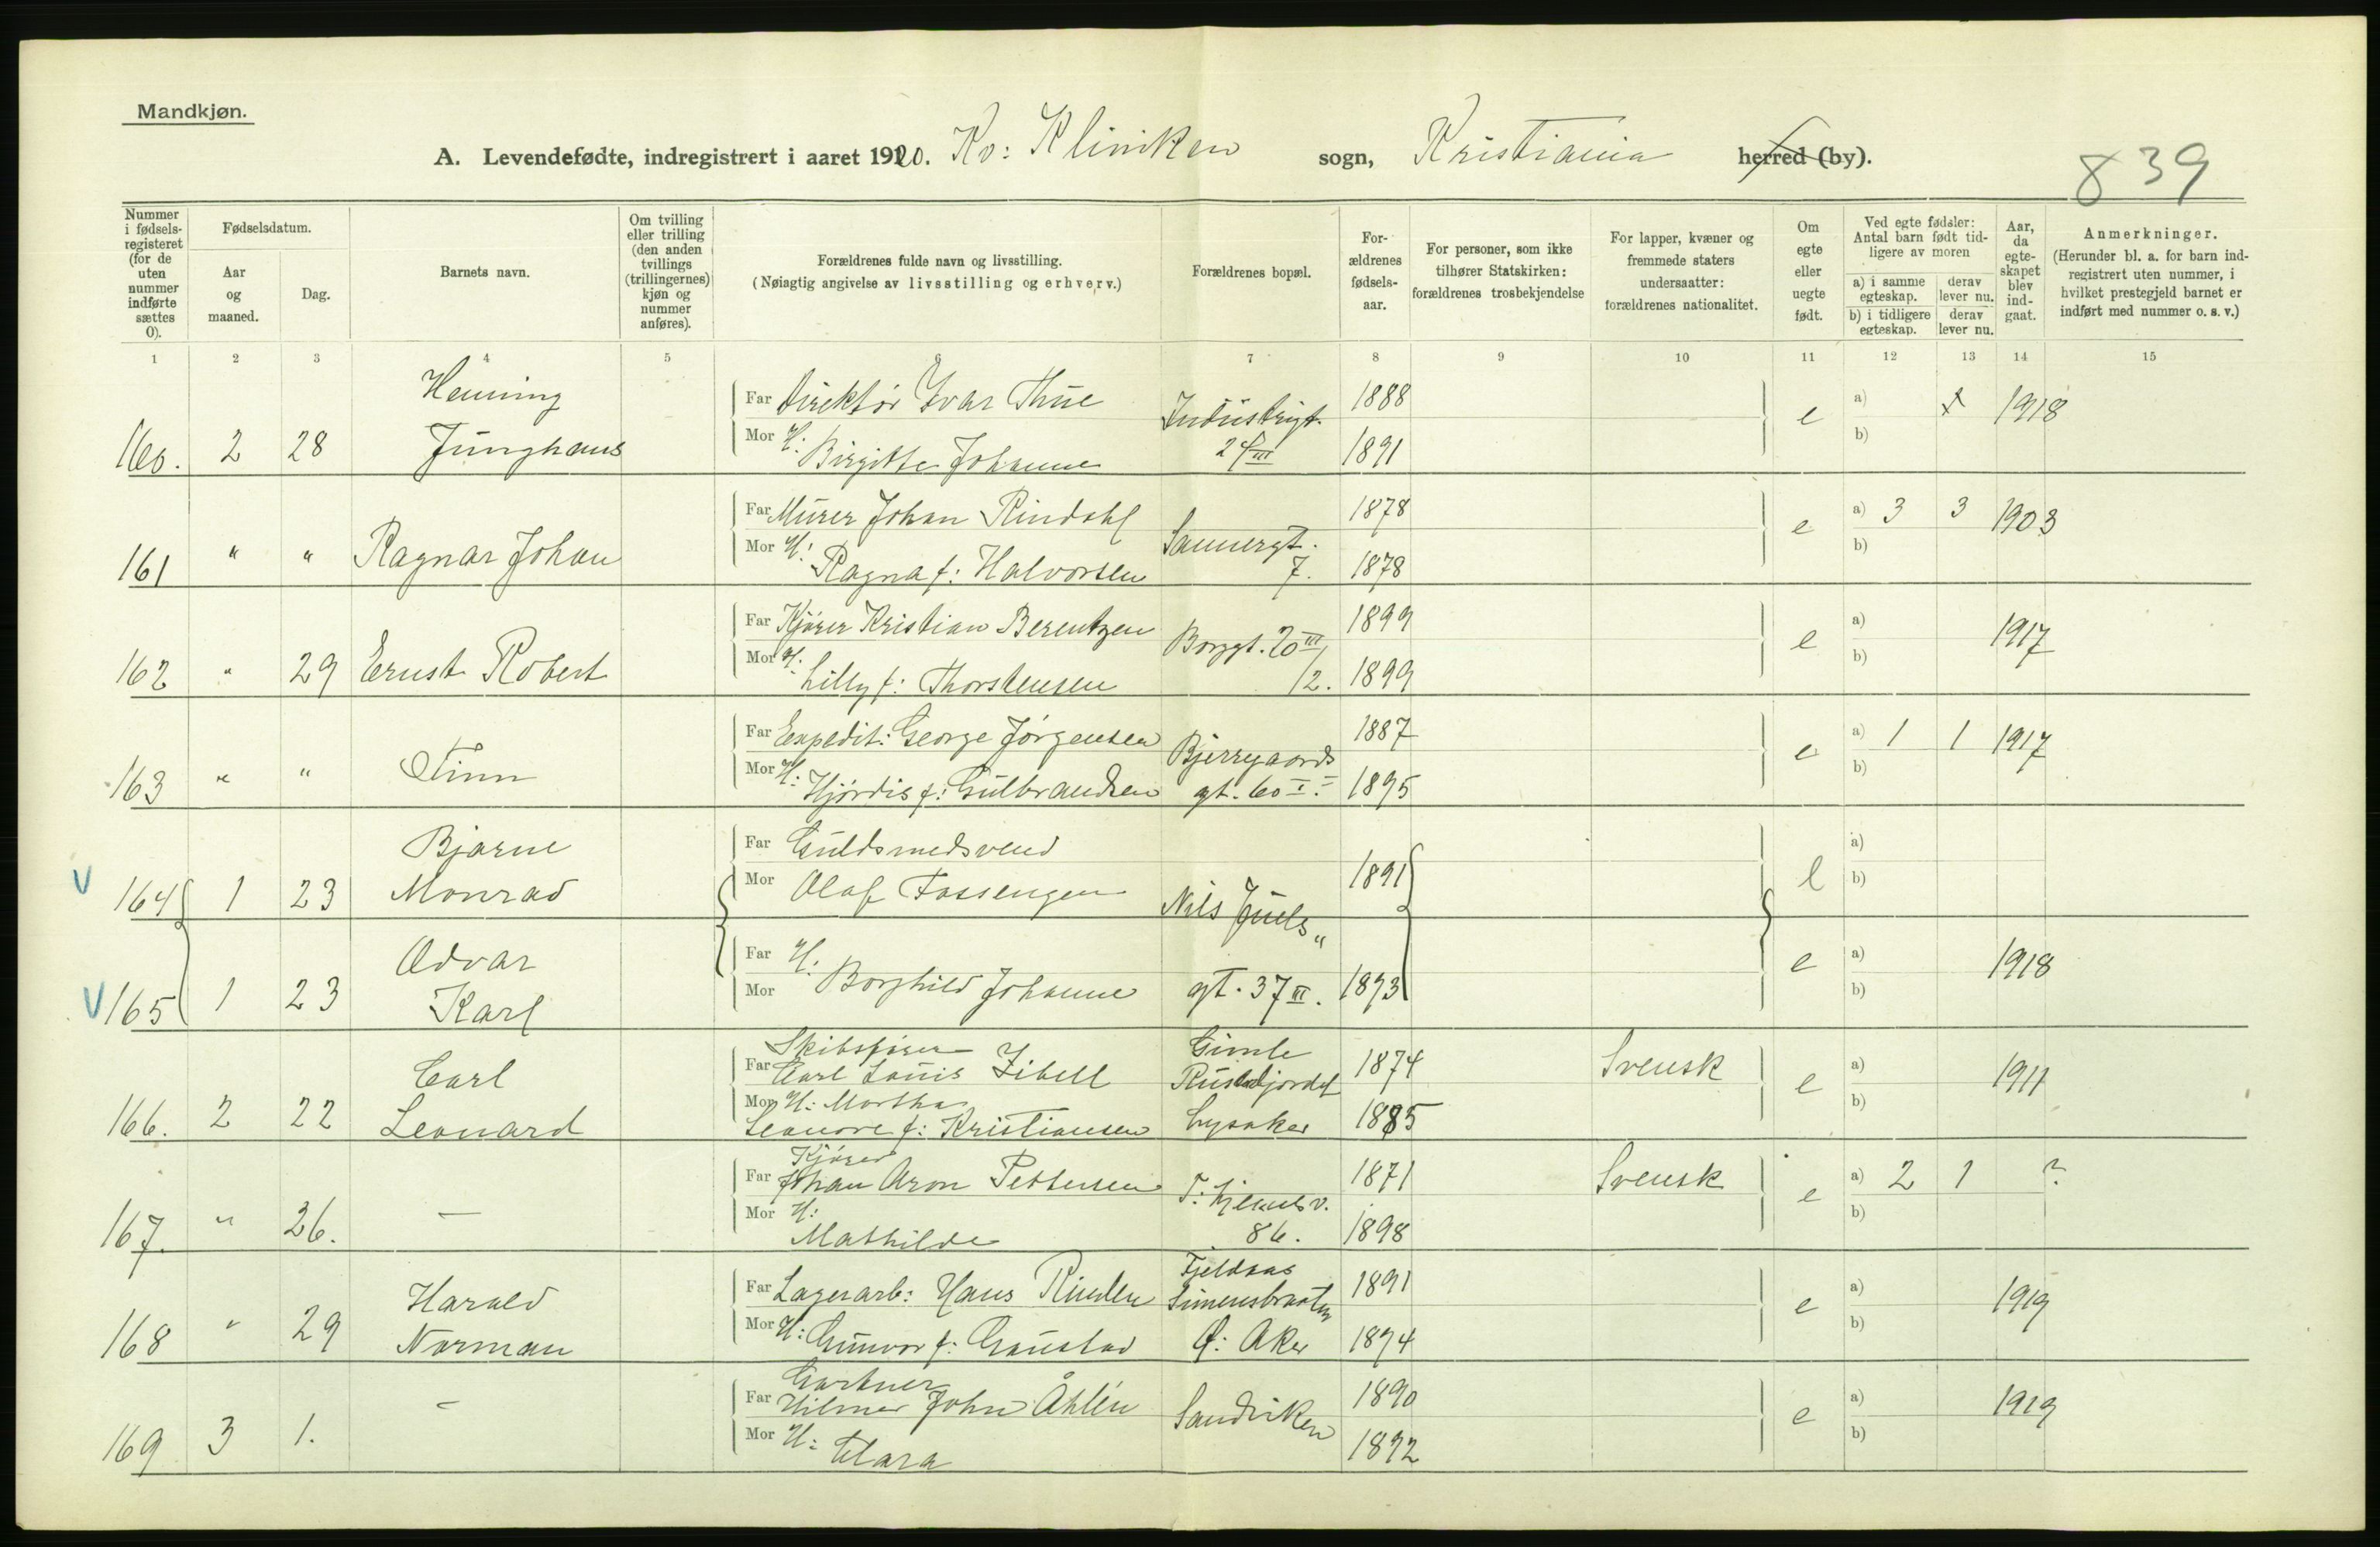 Mandkjøn.
A. Levendefødte, indregistrert i aaret 1920. Kv: Kliniken sogn, Kristiania herred (by).
839
Nummer i fødselsregisteret (for de uten nummer indførte sættes 0).
Fødselsdatum.
Aar og maaned.
Dag.
Barnets navn.
Om tvilling eller trilling (den anden tvillings (trillingernes) kjøn og nummer anføres).
Forældrenes fulde navn og livsstilling.
(Nøiagtig angivelse av livsstilling og erhverv.)
Forældrenes bopæl.
Forældrenes fødselsaar.
For personer, som ikke tilhører Statskirken: forældrenes trosbekjendelse
For lapper, kvæner og fremmede staters undersaatter: forældrenes nationalitet.
Om egte eller uegte født.
Ved egte fødsler: Antal barn født tidligere av moren
a) i samme egteskap.
derav lever nu.
b) i tidligere egteskap.
derav lever nu.
Aar, da egteskapet blev indgaat.
Anmerkninger.
(Herunder bl. a. for barn indregistrert uten nummer, i hvilket prestegjeld barnet er indført med nummer o. s. v.)
1 2 3 4 5 6 7 8 9 10 11 12 13 14 15
Henning Far Direktør Ivar Thue Industrigt. 1888 e a) 1918
160. 2 28 Junghans Mor H: Birgitte Johanne 24 III 1891 b)
Far Murer Johan Rindahl Sannergt. 1878 e a) 3 3 1903
161 " " Ragnar Johan Mor H: Ragna f: Halvorsen 7. 1878 b)
Far Kjører Kristian Berentzen Borggt. 20 III 1899 e a) 1917
162 " 29 Ernst Robert Mor H: Lilly f: Thorstensen /2. 1899 b)
Far Expedit: George Jörgensen Bjerregaards 1887 e a) 1 1 1917
163 " " Finn Mor H: Hjördis f: Gulbrandsen gt. 60 I. 1895 b)
Bjarne Far Guldsmedsvend a)
V 164 1 23 Monrad Mor Olaf Fossengen Nils Juels " 1891 e b)
Odvar Far H: e a) 1918
V 165 1 23 Karl Mor Borghild Johanne gt. 37 III. 1893 b)
Skibsfører Gimle
Carl Far Carl Louis Zibell 1874 Svensk e a) 1911
Mor H: Martha
166. 2 22 Leonard Leonore f: Kristiansen Lysaker 1885 b)
Kjører
Far Johan Aron Pettersen T: Hjelmsv. 1871 Svensk e a) 2 1 ?
167. " 26. — Mor H: Mathilde 86. 1898 b)
Fjeldaas
Harald Far Lagerarb: Hans Rinden Simensbraaten 1891 e a) 1919
168 " 29 Norman Mor H: Gunvor f: Gaustad Ø: Aker 1894 b)
Gartner
Far Hilmer John Åhlén Sandviken 1890 e a) 1919
169 3 1. — Mor H: Clara 1892 b)